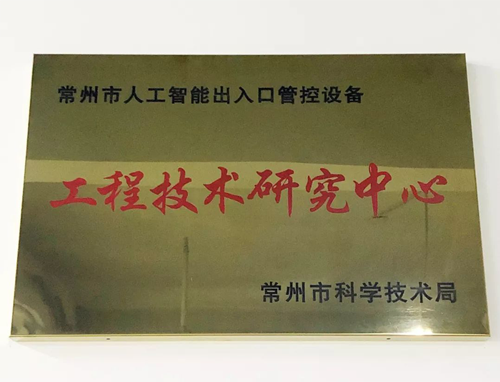 常州市人工智能出入口管控设备
工程技术研究中心
常州市科学技术局